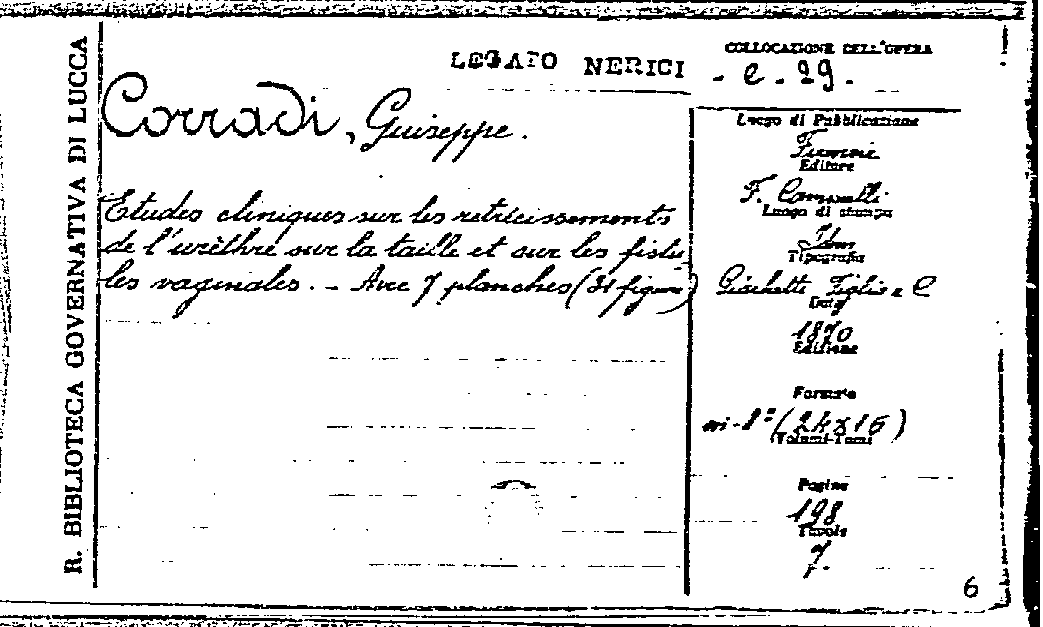 R. BIBLIOTECA GOVERNATIVA DI LUCCA
LEGATO NERICI
COLLOCAZIONE DELL'OPERA
- e. 29.
Corradi, Giuseppe.
Etudes cliniques sur les rétrécissements
de l'urèthre sur la taille et sur les fistu
les vaginales. - Avec 7 planches (31 figures)
Luogo di Pubblicazione
Firenze
Editore
F. Cammelli
Luogo di stampa
Tipografia
Figlio e C
Data
1870
Edizione
Formato
in-8º (24x16)
Volumi-Tomi
Pagine
198
Tavole
7.
6